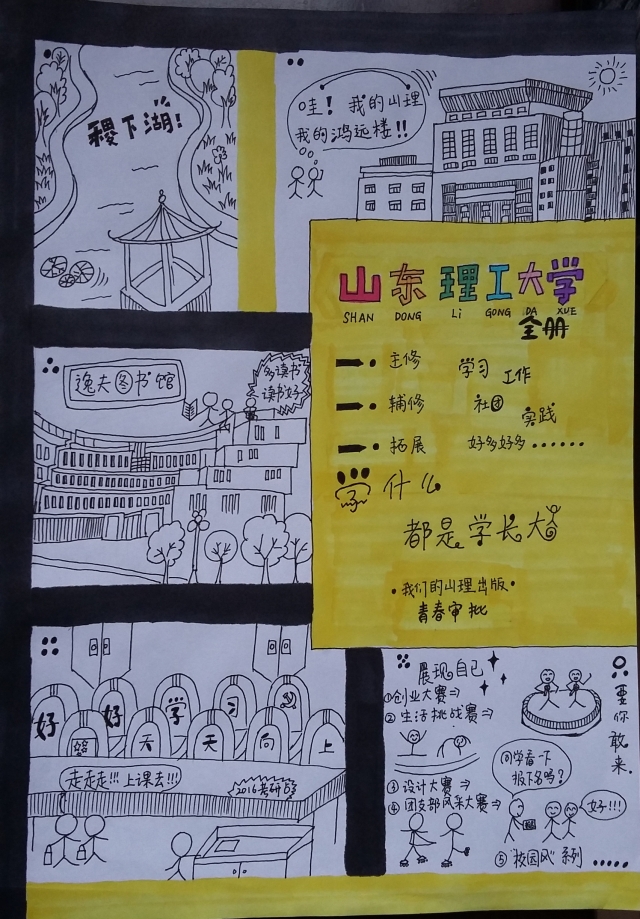 稷下湖!
哇! 我的山理
我的鸿远楼!!
山东理工大学
SHAN DONG Li GONG DA XUE
全册
主修 学习 工作
辅修 社团 实践
拓展 好多好多······
学 什么
都是学长大
·我们的山理出版·
青春审批
逸夫图书馆
多读书
读书好
好 好 学 习
天 天 向 上
走走走!!! 上课去!!!
2016考研
展现自己
①创业大赛⇒
②生活挑战赛⇒
③设计大赛⇒
④团支部风采大赛⇒
⑤"校园风"系列·····
同学看一下
报下名吗?
好!!!
只要你敢来.